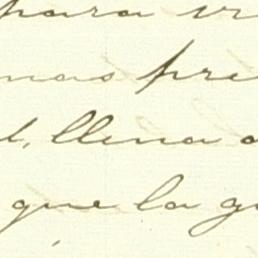 para vi
mas pre
l, llena a
que la gu